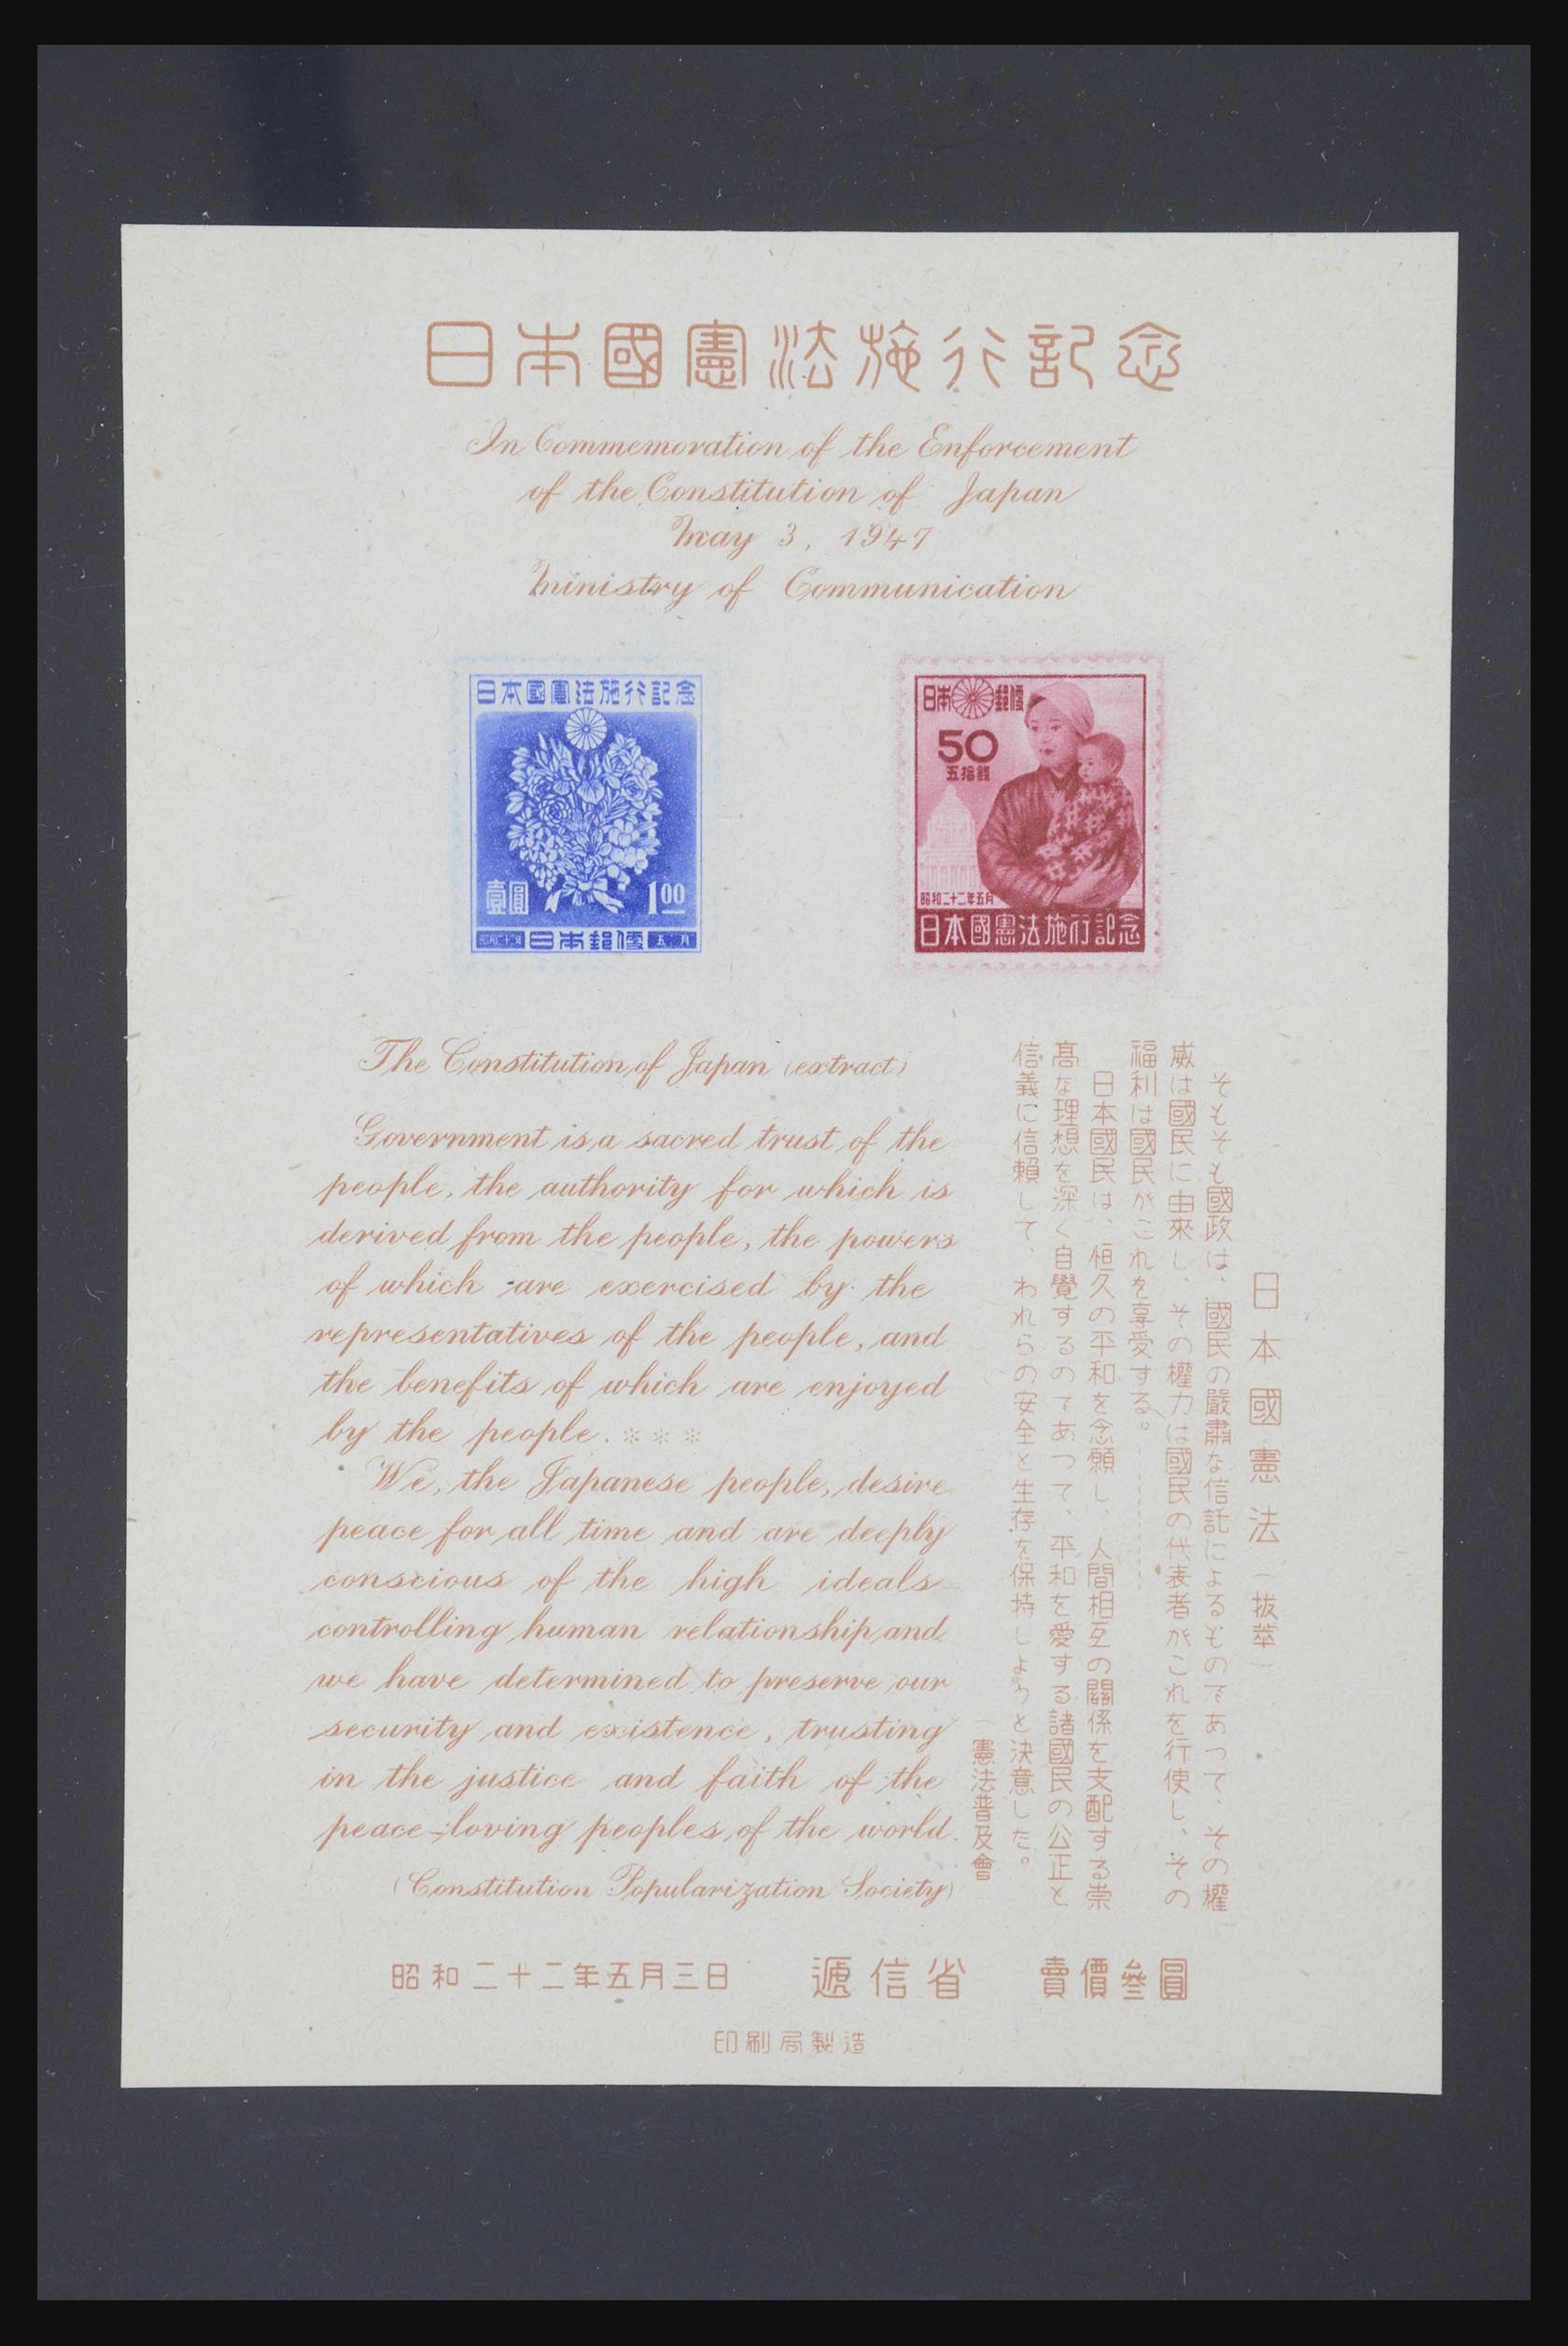 日本國憲法施行記念
In Commemoration of the Enforcement
of the Constitution of Japan
May 3, 1947
Ministry of Communication
日本國憲法施行記念
壹圓
1.00
昭和二十二年
日本郵便
五月
日本郵便
50
五拾錢
昭和二十二年五月
日本國憲法施行記念
The Constitution of Japan (extract)
Government is a sacred trust of the
people, the authority for which is
derived from the people, the powers
of which are exercised by the
representatives of the people, and
the benefits of which are enjoyed
by the people. ***
We, the Japanese people, desire
peace for all time and are deeply
conscious of the high ideals
controlling human relationship, and
we have determined to preserve our
security and existence, trusting
in the justice and faith of the
peace-loving peoples of the world.
(Constitution Popularization Society)
日本國憲法（抜萃）
そもそも國政は、國民の嚴肅な信託によるものであつて、その權
威は國民に由來し、その權力は國民の代表者がこれを行使し、その
福利は國民がこれを享受する。………
日本國民は、恒久の平和を念願し、人間相互の關係を支配する崇
高な理想を深く自覺するのであつて、平和を愛する諸國民の公正と
信義に信賴して、われらの安全と生存を保持しようと決意した。
（憲法普及會）
昭和二十二年五月三日 遞信省 賣價參圓
印刷局製造